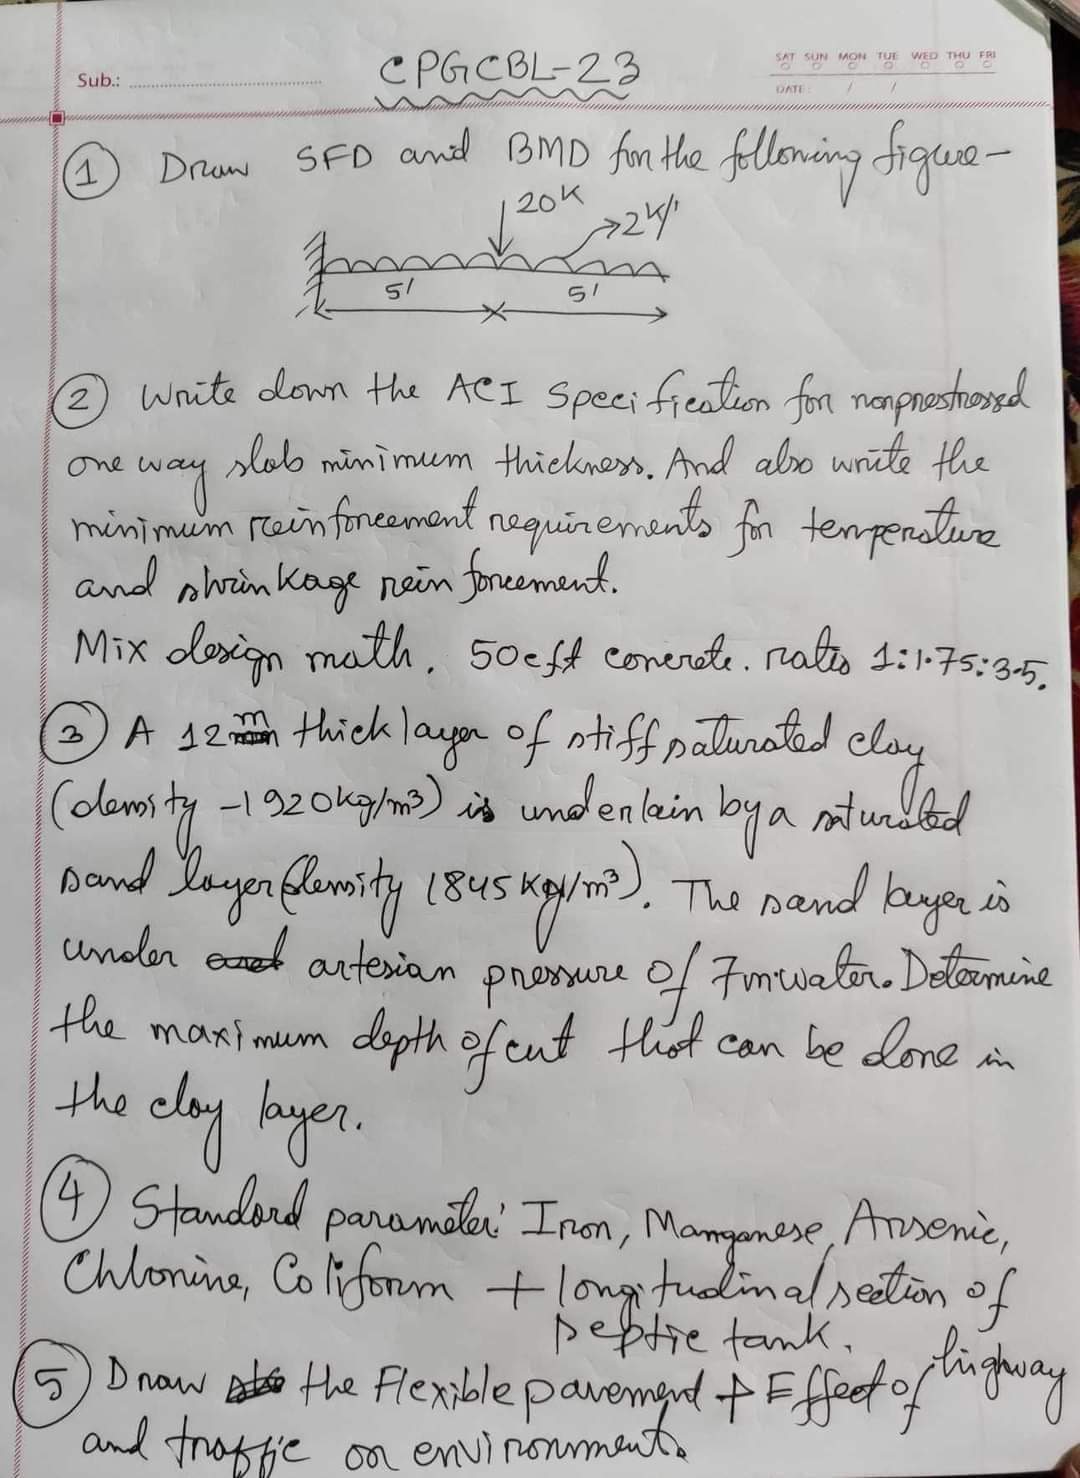 Sub.:
CPGCBL-23
SAT SUN MON TUE WED THU FRI
DATE: / /
1 Draw SFD and BMD for the following figure-
20K
2K/'
5' 5'
2 Write down the ACI Specification for nonprestressed
one way slab minimum thickness. And also write the
minimum reinforcement requirements for temperature
and shrinkage reinforcement.
Mix design math. 50cft concrete. ratio 1:1.75:3.5.
3 A 12m thick layer of stiff saturated clay
(density -1920kg/m3) is underlain by a saturated
sand layer (density 1845 kg/m3). The sand layer is
under artesian pressure of 7m water. Determine
the maximum depth of cut that can be done in
the clay layer.
4 Standard parameter: Iron, Manganese, Arsenic,
Chlorine, Coliform + longitudinal section of
septic tank.
5 Draw the Flexible pavement + Effect of highway
and traffic on environment.